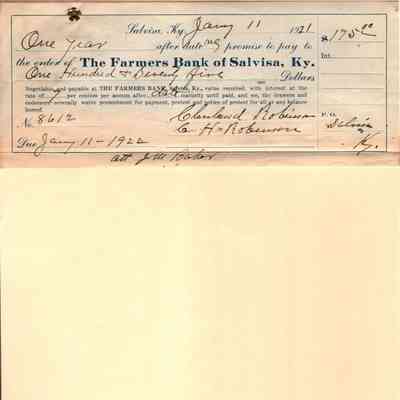 Salvisa, Ky. Jany 11 1921 $175.00
One Year after date we promise to pay to
the order of The Farmers Bank of Salvisa, Ky. Int.
One Hundred & Seventy Five Dollars
Negotiable and payable at THE FARMERS BANK, Salvisa, Ky., value received, with interest at the
rate of per centum per annum after maturity until paid, and we, the drawers and
endorsers severally waive presentment for payment, protest and notice of protest for all or any balance
hereof.
No. 8612 Clanland Robinson P. O.
C. H. Robinson Salvisa
Due Jany 11-1922 Ky.
att J M Baker